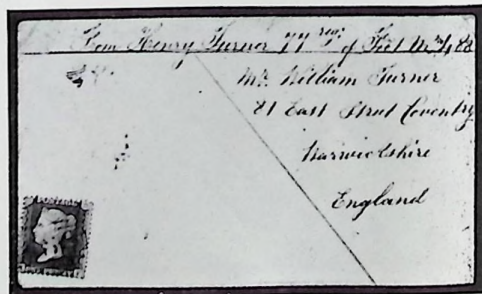 From Henry Turner 77 regt of Foot
Mr. William Turner
21 East Street Coventry
Warwickshire
England